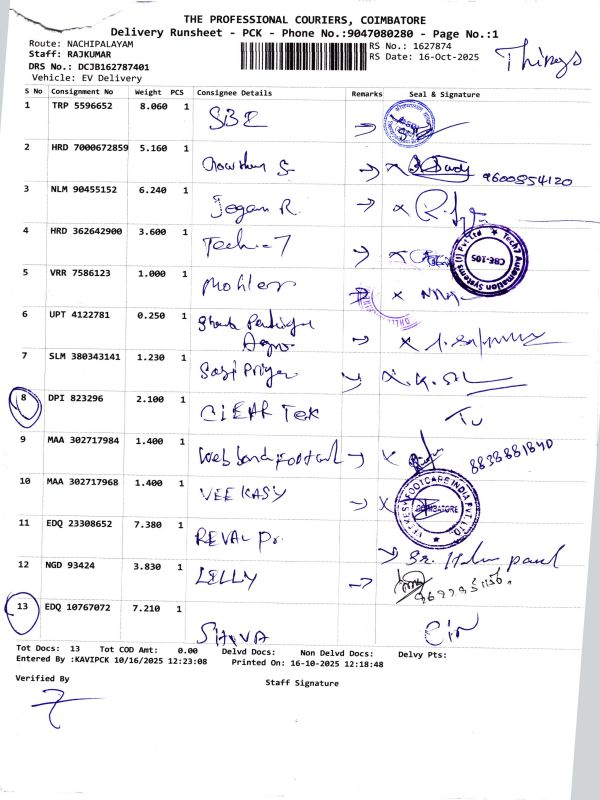 THE PROFESSIONAL COURIERS, COIMBATORE
Delivery Runsheet - PCK - Phone No.:9047080280 - Page No.:1
Route: NACHIPALAYAM
Staff: RAJKUMAR
DRS No.: DCJB162787401
Vehicle: EV Delivery
RS No.: 1627874
RS Date: 16-Oct-2025
Things
S No Consignment No Weight PCS Consignee Details Remarks Seal & Signature
1 TRP 5596652 8.060 1
2 HRD 7000672859 5.160 1 Gowtham S 9600854120
3 NLM 90455152 6.240 1 Jegan R.
4 HRD 362642900 3.600 1 Tech-7
Tech7 Automation Systems (I) Pvt Ltd
CBE-105
5 VRR 7586123 1.000 1 Mohler
6 UPT 4122781 0.250 1
7 SLM 380343141 1.230 1 Sasi Priya
8 DPI 823296 2.100 1 ClEAR TeK
9 MAA 302717984 1.400 1 8838881840
10 MAA 302717968 1.400 1 VEEKASY
VEEKESY FOOTCARE INDIA PVT. LTD.
COIMBATORE
11 EDQ 23308652 7.380 1 REVAL Pr.
12 NGD 93424 3.830 1 LELLY
13 EDQ 10767072 7.210 1 SHIVA
Tot Docs: 13 Tot COD Amt: 0.00 Delvd Docs: Non Delvd Docs: Delvy Pts:
Entered By :KAVIPCK 10/16/2025 12:23:08 Printed On: 16-10-2025 12:18:48
Verified By
Staff Signature